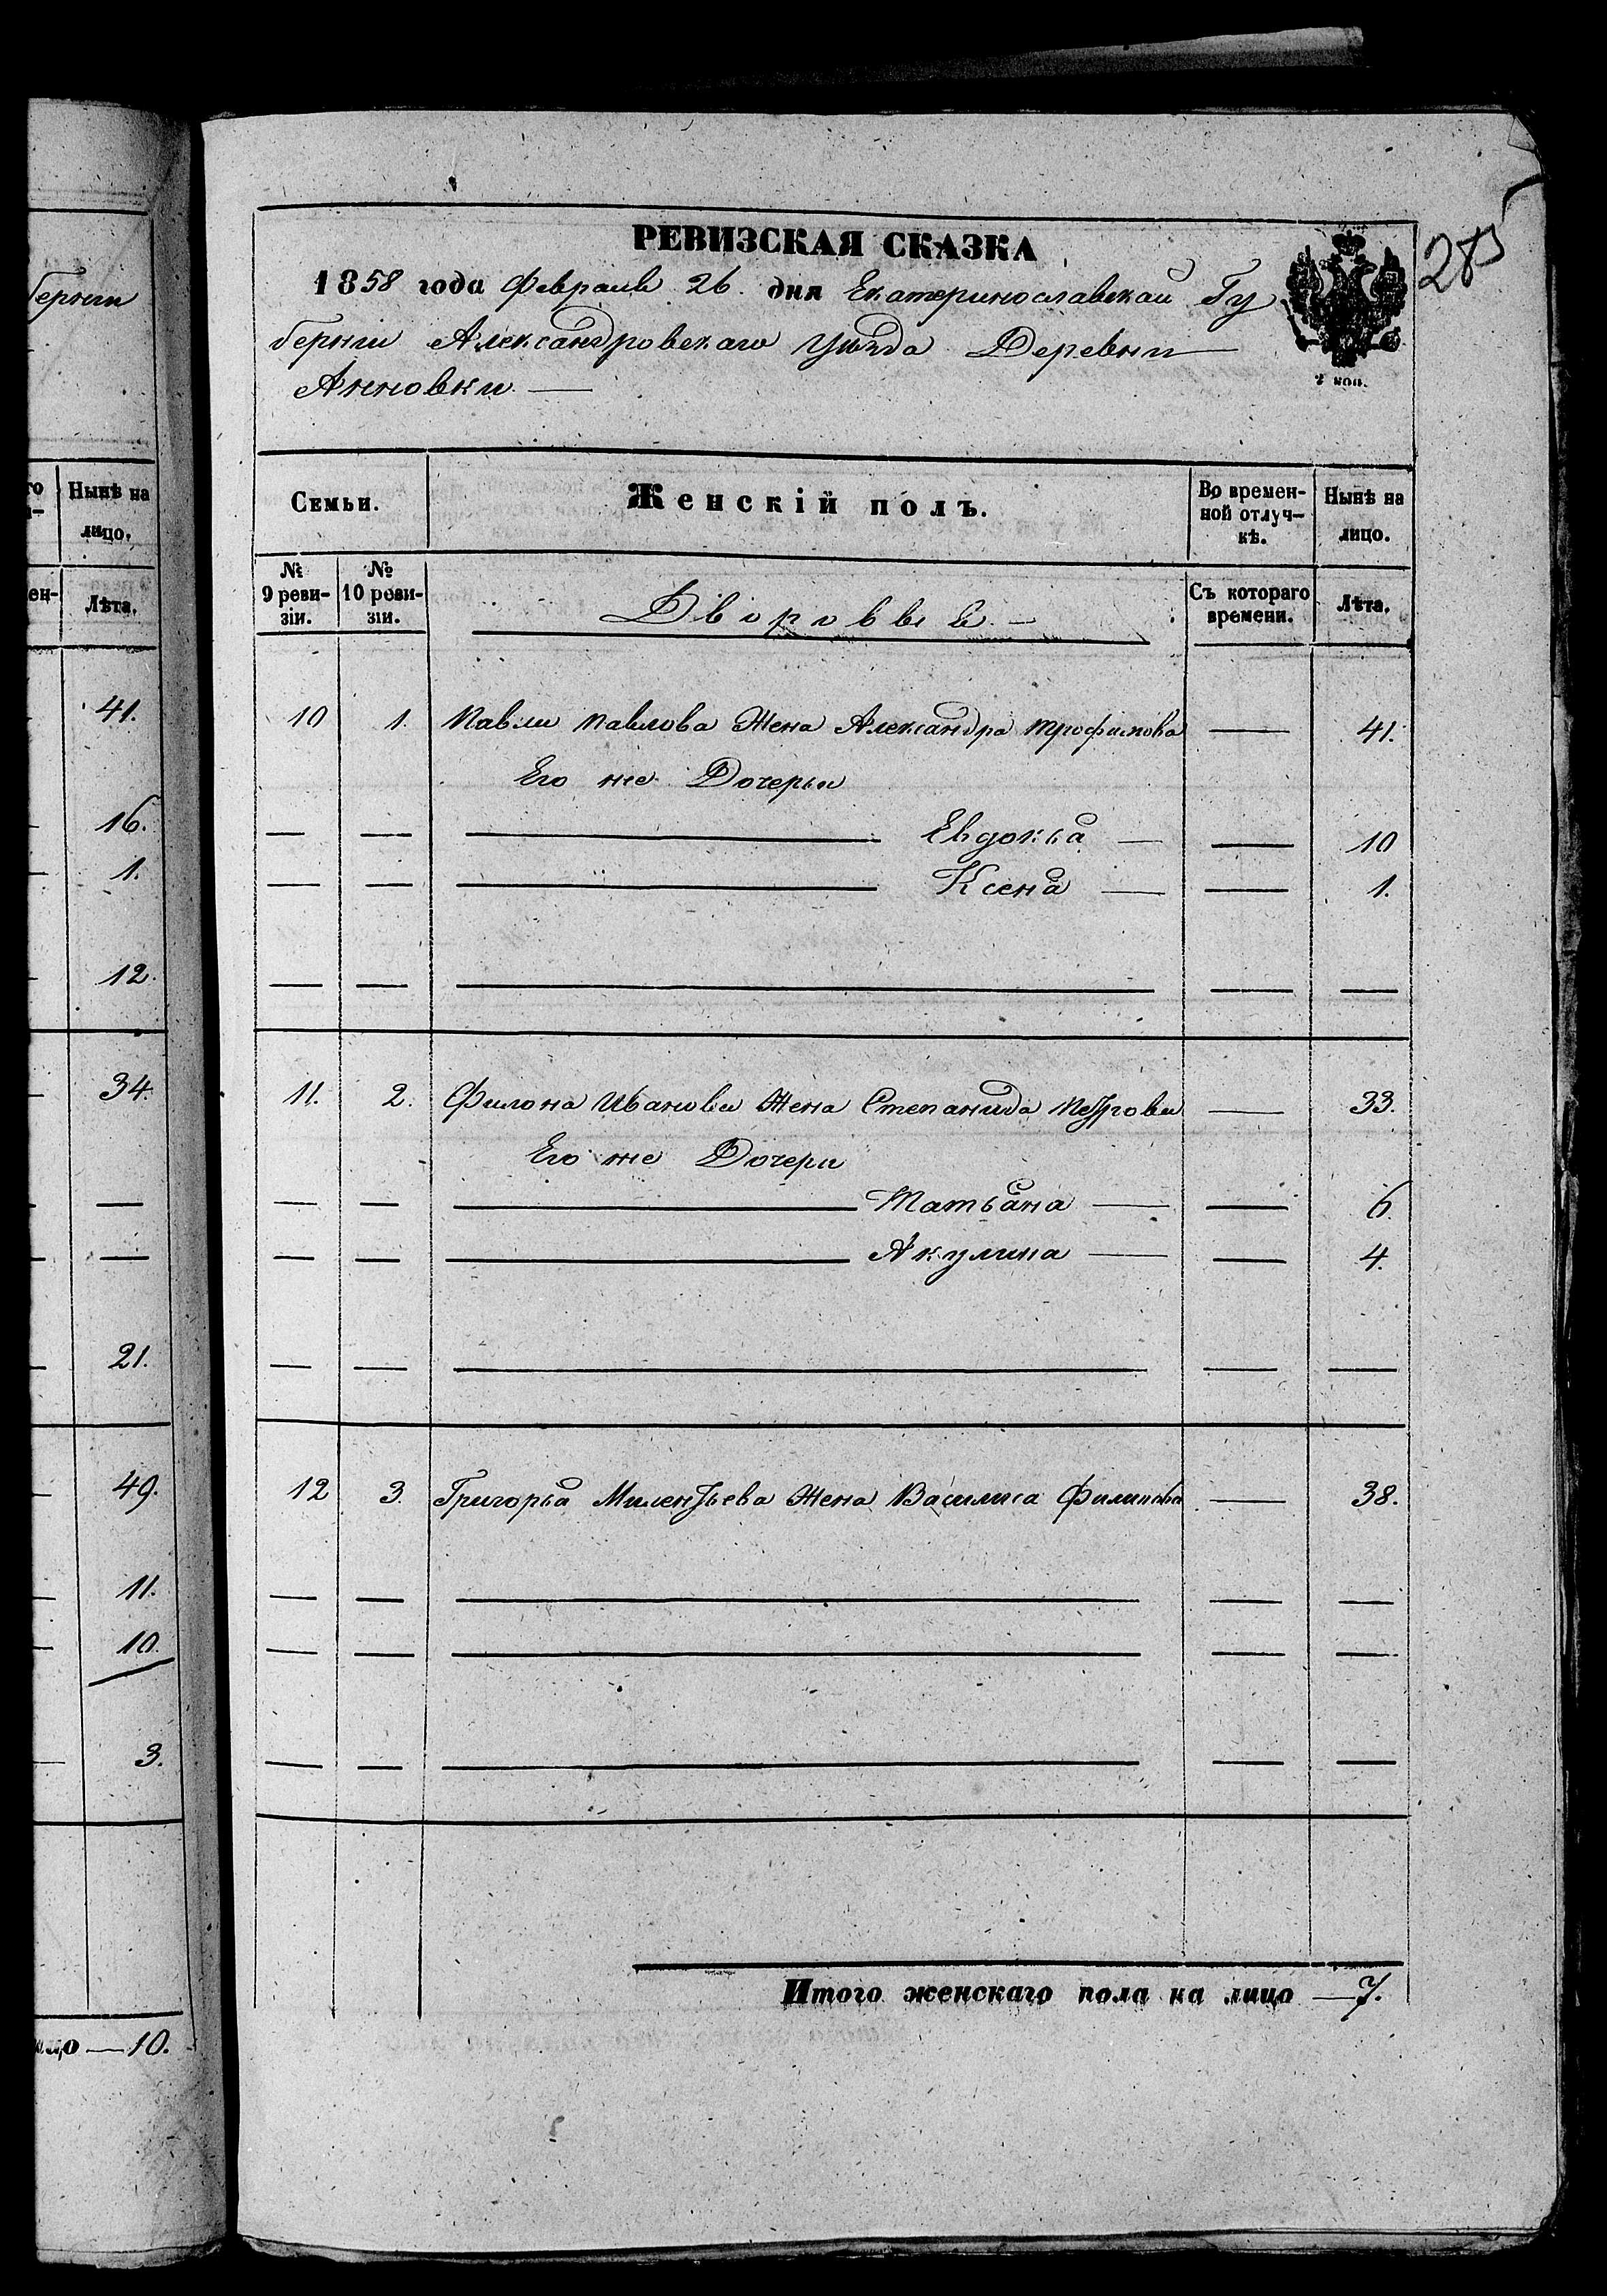 бернiи
го Нынѣ на
и- лицо.
ен- Лѣта.
41.
16.
1.
12.
34.
21.
49.
11.
10.
3.
ицо — 10.
285
РЕВИЗСКАЯ СКАЗКА
1858 года Февраля 26 дня Екатеринославской Гу
бернiи Александровскаго Уѣзда Деревни
Анновки
2 коп.
Семьи. Женскій полъ. Во времен- Нынѣ на
ной отлуч- лицо.
кѣ.
№ 9 реви- зіи. № 10 реви- зіи. Дворовые Съ котораго времени. Лѣта.
10 1. Павла Павлова Жена Александра трофимова — 41.
Его же Дочерьи
— — — Евдокья — — 10
— — — Ксенa — — 1.
— — — — —
11. 2. Филона Иванова Жена Степанида Петрова — 33.
Его же Дочери
— — — Татьяна — — 6.
— — — Акулина — — 4.
— — — — —
12 3. Григорья Милентьева Жена Василиса Филипова — 38.
— — — — —
— — — — —
— — — — —
Итого женскаго пола на лицо — 7.